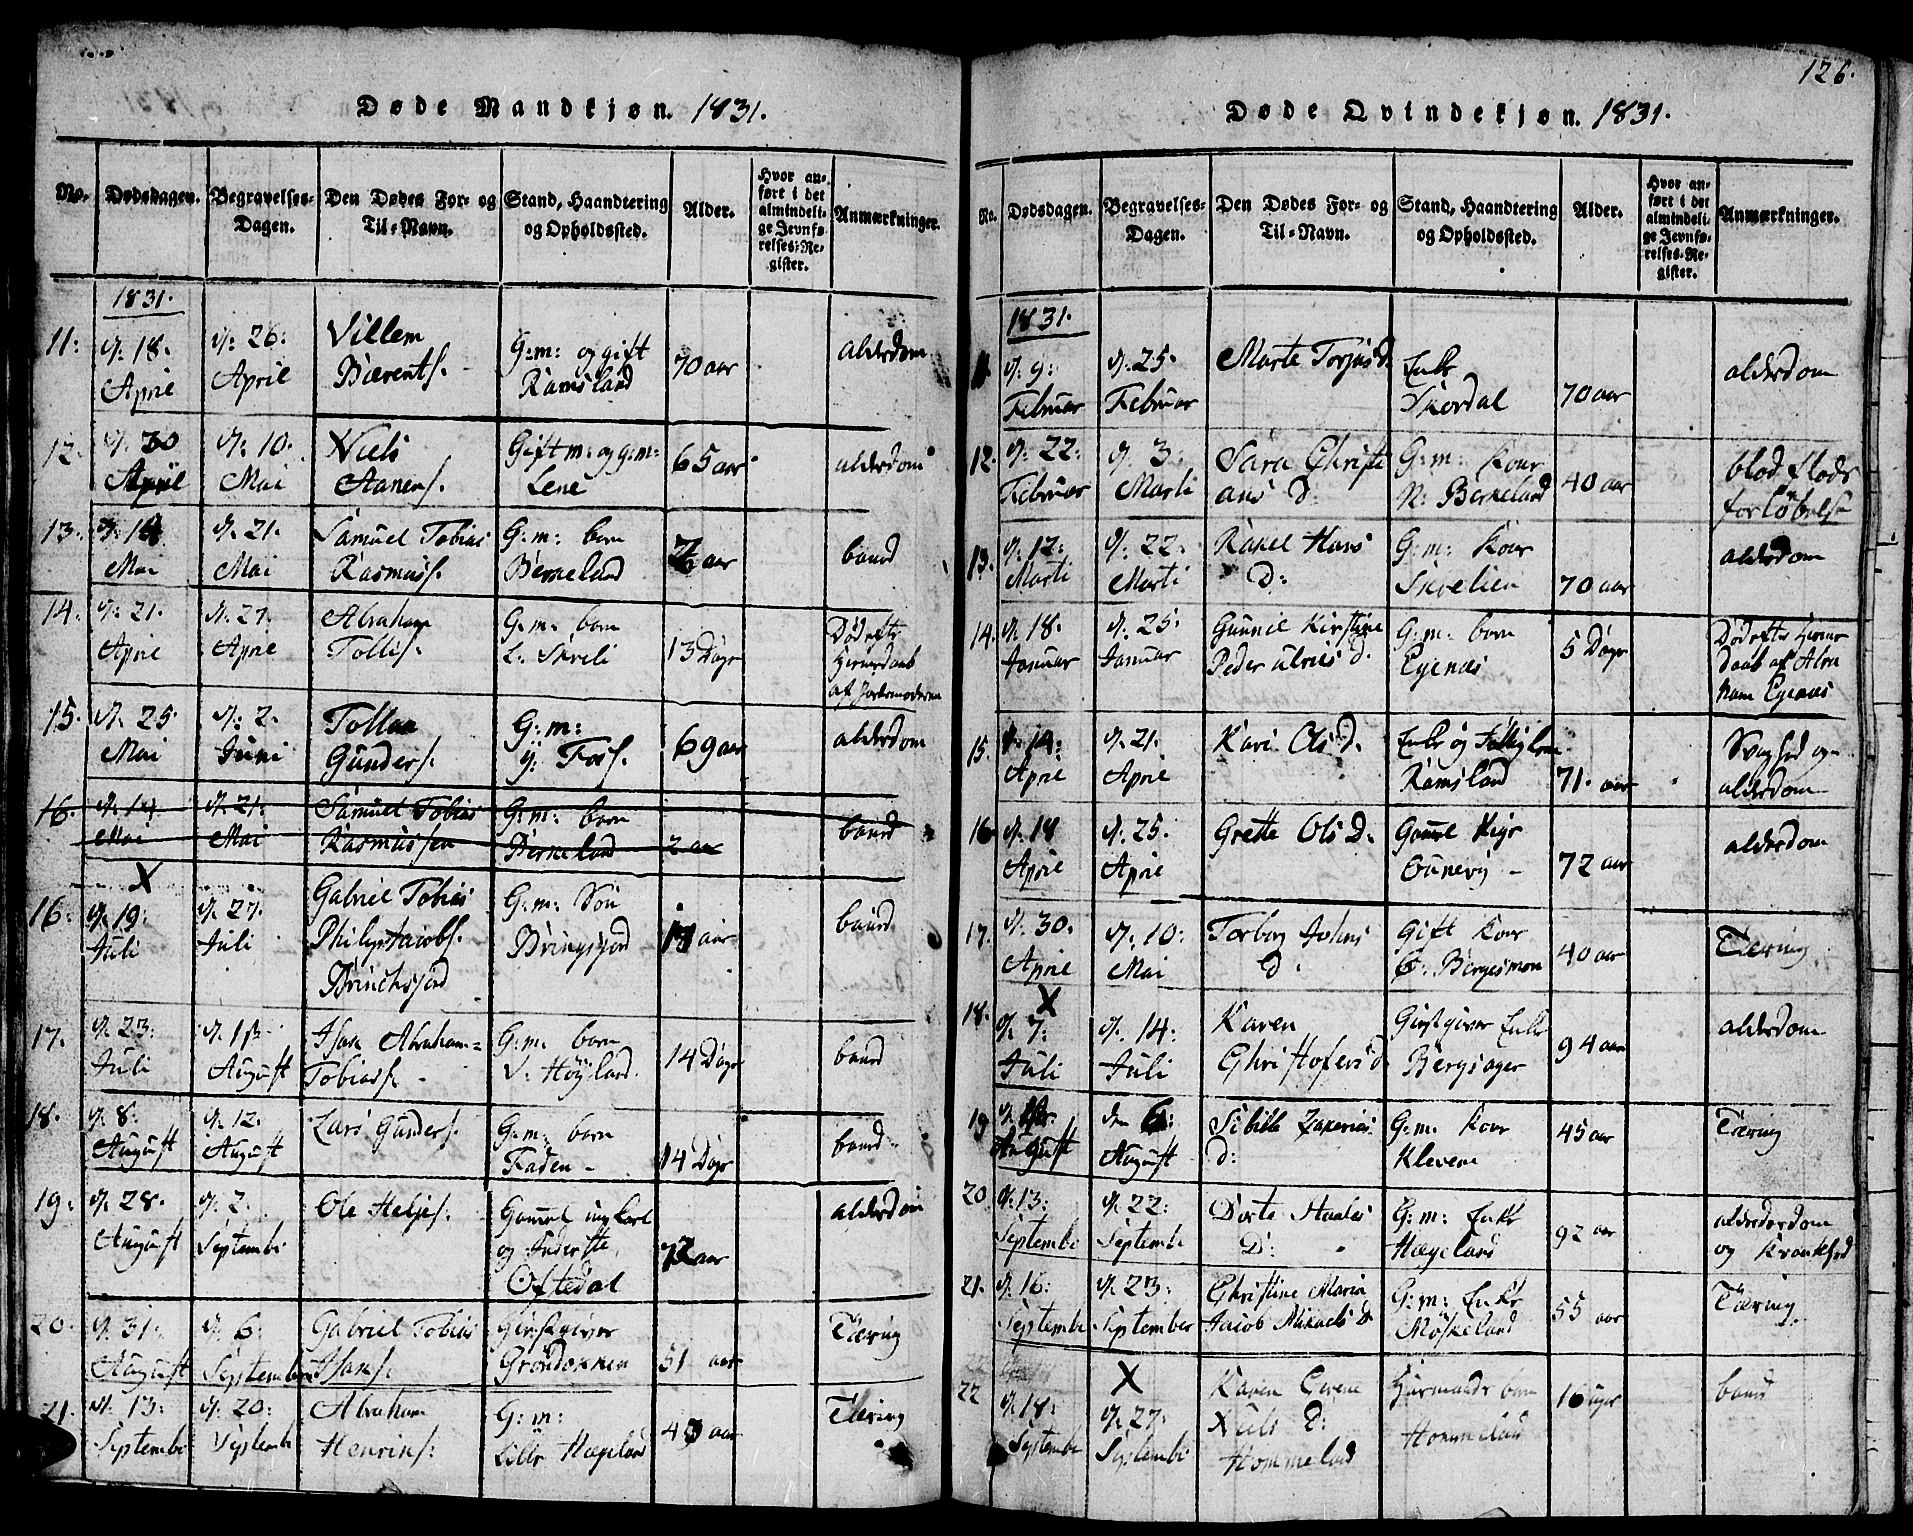 126.
Døde Mandkjøn. 1831.
No.
Dødsdagen.
Begravelses-
Dagen.
Den Dødes For- og
Til-Navn.
Stand, Haandtering
og Opholdssted.
Alder.
Hvor an-
ført i det
almindeli-
ge Jevnfø-
relses-Re-
gister.
Anmærkninger.
1831.
11:
d: 18.
April
d: 26:
April
Villem
Bærents.
G:m: og gift
Ramsland
70 aar
alderdom
12.
d: 30
April
d: 10.
Mai
Niels
Aanens.
Gift m: og g:m:
Lene
65 aar
alderdom
13.
d: 14
Mai
d: 21.
Mai
Samuel Tobias
Rasmuss.
G:m: barn
Berkeland
2 aar
baand
14.
d: 21.
April
d: 27.
April
Abraham
Tollis.
G:m: barn
L: Skveli
13 Dage
Død efter
hiemedaab
af Jordemoderen
15.
d. 25
Mai
d: 2.
Juni
Tollan
Gunders.
G:m:
y: Foss.
69 aar
alderdom
16.
d: 14
Mai
d. 21:
Mai
Samuel Tobias
Rasmussen
G:m: barn
Berkeland
2 aar
baand
X
16.
d: 19:
Juli
d. 27.
Juli
Gabriel Tobias
Philip Jacobs.
Brinchsjord
G:m: Søn
Bringsjord
aar
baand
17.
d. 23:
Juli
August
Isak Abraham=
Tobiass.
G:m. barn
V: Høyland.
14 Dage
baand
18.
d. 8:
August
d. 12.
August
Lars Gunders.
G:m: barn
Faden -
14 Dage
baand
19.
d. 28.
August
d. 2.
Septembr
Ole Heljes.
Gammel ungkarl
og Inderste
Oftedal
72 aar
alderdom
20.
d. 31.
August
d. 6:
September
Gabriel Tobias
Isaks.
Giestgiver
Grøndokken
51 aar
Tæring
21.
d. 13.
Septembr
d. 20:
Septembr
Abraham
Henriks.
G:m:
Lille Hægeland
aar
Tæring
Døde Qvindekjøn. 1831.
No.
Dødsdagen.
Begravelses-
Dagen.
Den Dødes For- og
Til-Navn.
Stand, Haandtering
og Opholdssted.
Alder.
Hvor an-
ført i det
almindeli-
ge Jevnfø-
relses-Re-
gister.
Anmærkninger.
1831.
11
d: 9:
Februar
d. 25.
Februar
Marte Torjus d.
Enke
Skordal
70 aar
alderdom
12.
d: 22.
Februar
d. 3.
Marti
Sara Christi
ans D.
G:m: Kone
N: Berkeland
40 aar
blod
13.
d: 12:
Marti
d: 22:
Marti
Rakel Hans
D:
G:m: Kone
Skvelien
70 aar
alderdom
14.
d: 18.
Januar
d. 25:
Januar
Gunnil Kirstine
Peder Ulrics D.
G:m: barn
Egenæs
5 Dage
Død efter hieme
daab af Abra
ham Egenæs
15.
d: 14:
April
d. 21.
April
Kari Ols D.
Enke og
Ramsland
71. aar
Svaghed og
alderdom
16
d. 18
April
d. 25.
April
Grette Ols D.
Gammel Pige
72 aar
alderdom
17.
d. 30.
April
d: 10:
Mai
Torbor Johns
D.
Gift Kone
Bergesmoen
40 aar
Tæring
X
18.
d: 7:
Juli
d. 14:
Juli
Karen
Christofers d
Giestgiver Enke
Bergsager
94 aar
alderdom
19
August
August
Sibille Zakarias
D:
G:m: Kone
Klevene
45 aar
Tæring
20
d: 13:
Septembr
d. 22:
Septembr
Dorte Haales
D:
G:m: Enke
Hægeland
92 aar
alderdom
og Krankhed
21.
d. 16:
Septembr
d. 23:
September
Christine Maria
Jacob Mikaels D
G:m: Enke
Møskeland
55 aar
Tæring
X
22
d. 18:
Septembr
d: 27:
Septembr
Karen Gurine
Niels D:
Hommeland
Huusmands barn
Hommeland
16 uger
baand